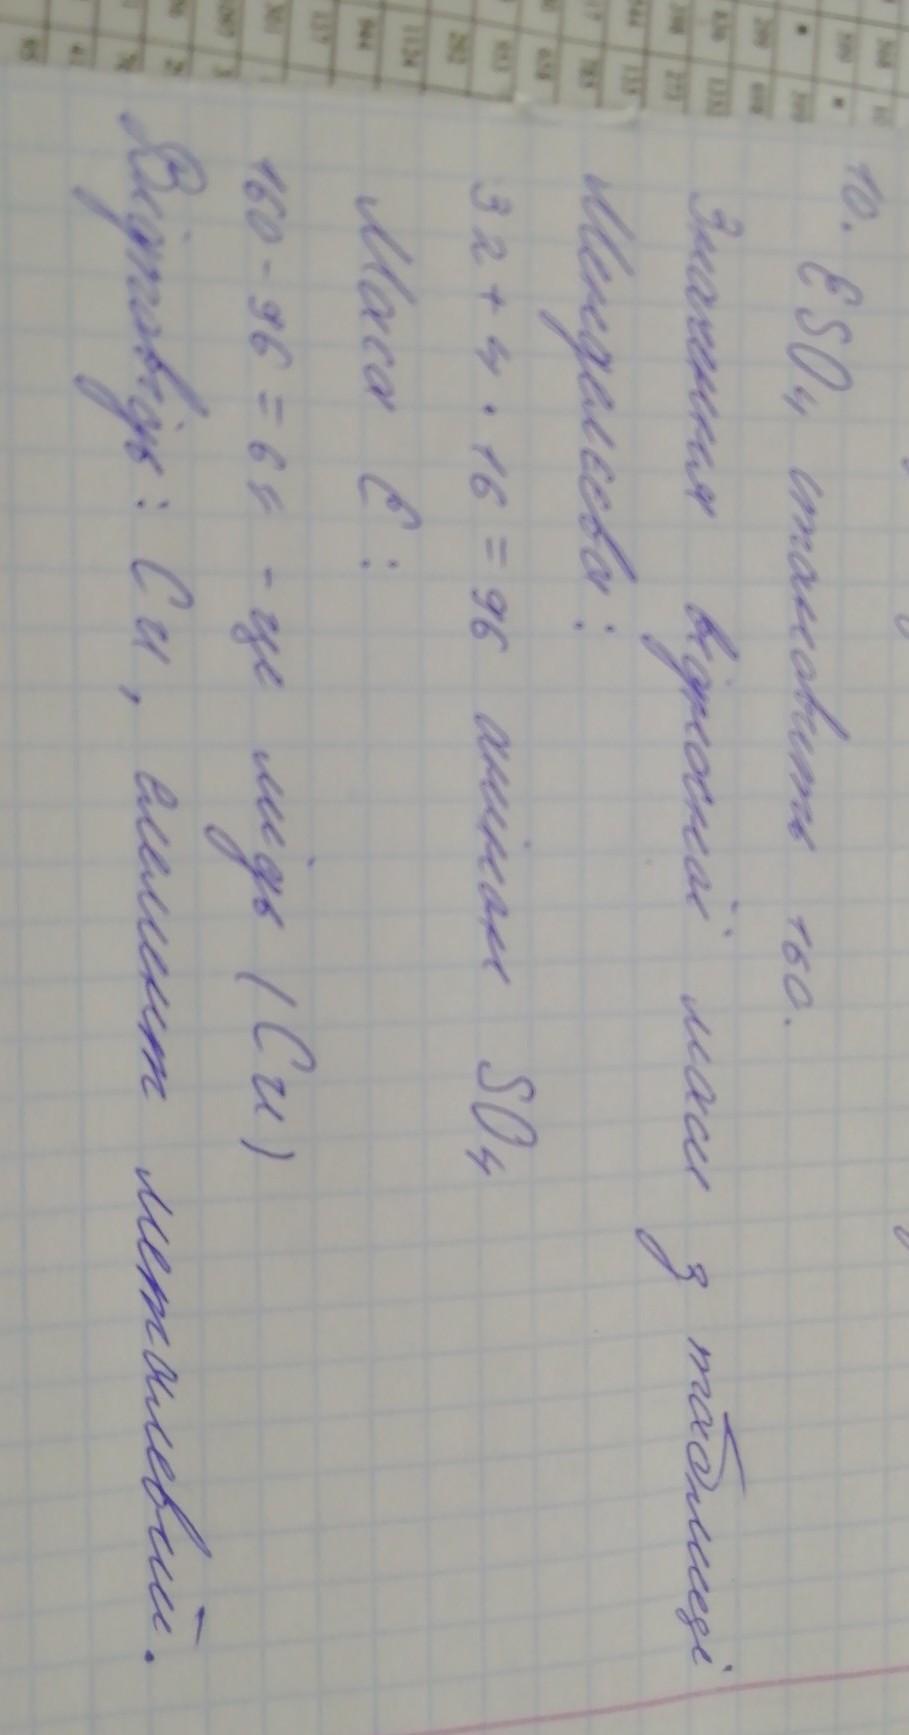 10. ESO₄ становить 160.
Значення відносної маси з таблиці
Менделєєва:
32 + 4 · 16 = 96 аніон SO₄
Маса E:
160 - 96 = 64 - це мідь (Cu)
Відповідь: Cu, елемент металевий.